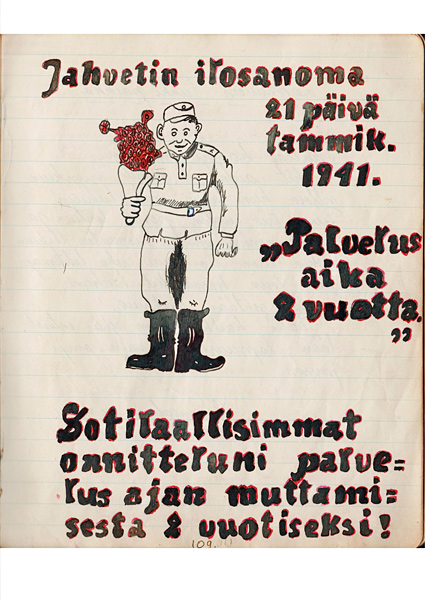 Jahvetin ilosanoma
21 päivä
tammik.
1941.
„Palvelus
aika
2 vuotta.
”
Sotilaallisimmat
onnitteluni palve=
lus ajan muttami=
sesta 2 vuotiseksi!
109.